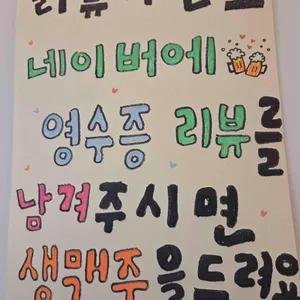 네이버에
영수증 리뷰를
남겨주시면
생맥주을드려요